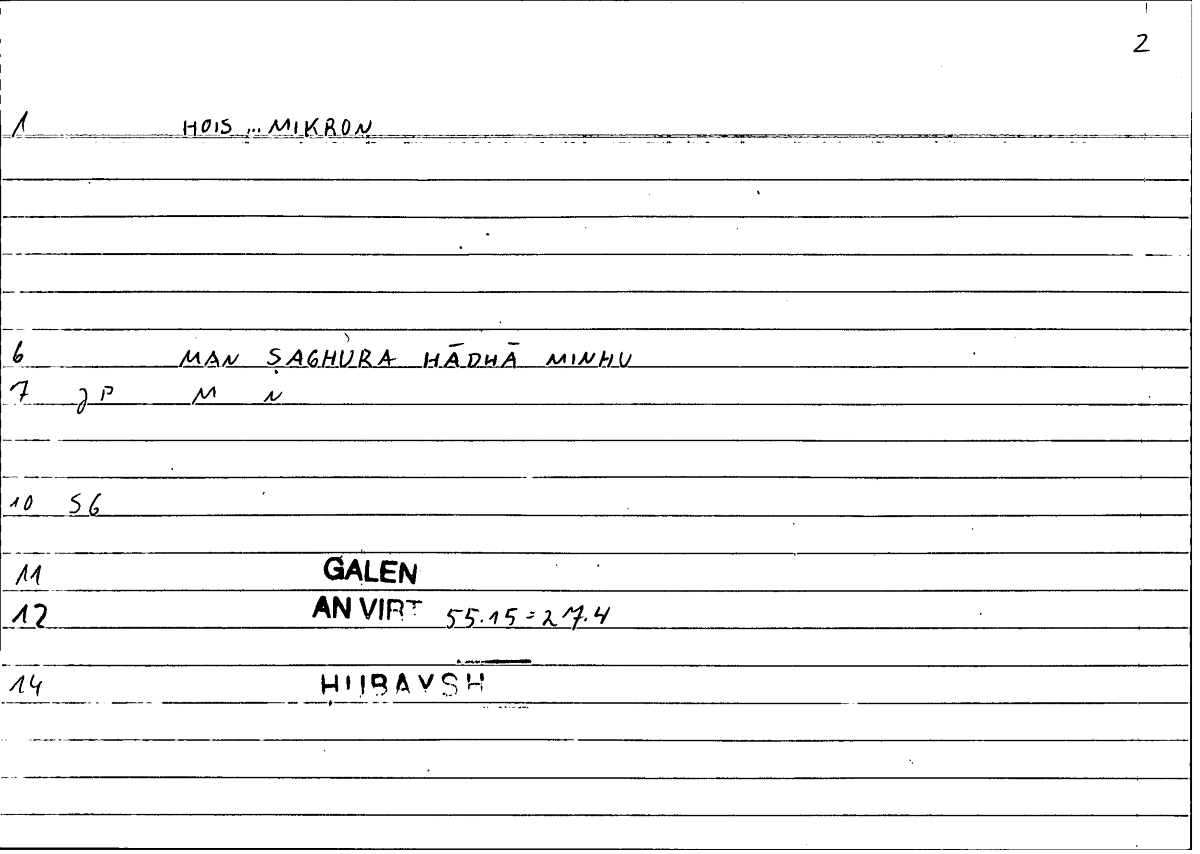 2
1 HOIS ... MIKRON
6 MAN ṢAGHURA HĀDHĀ MINHU
7 JP M N
10 SG
11 GALEN
12 AN VIRT 55.15=27.4
14 ḤUBAYSH